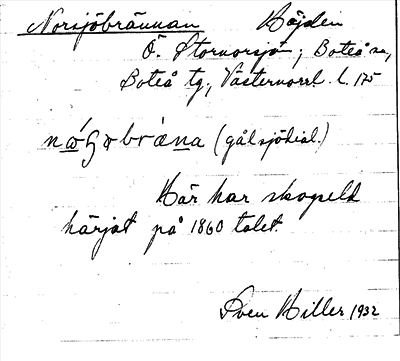 Norsjöbrännan Höjden
Ö. Stornorsjön; Boteå sn,
Boteå tg., Västernorrl. l. 175
(gålsjödial.)
Här har skogseld
härjat på 1860 talet.
Sven Hiller 1932